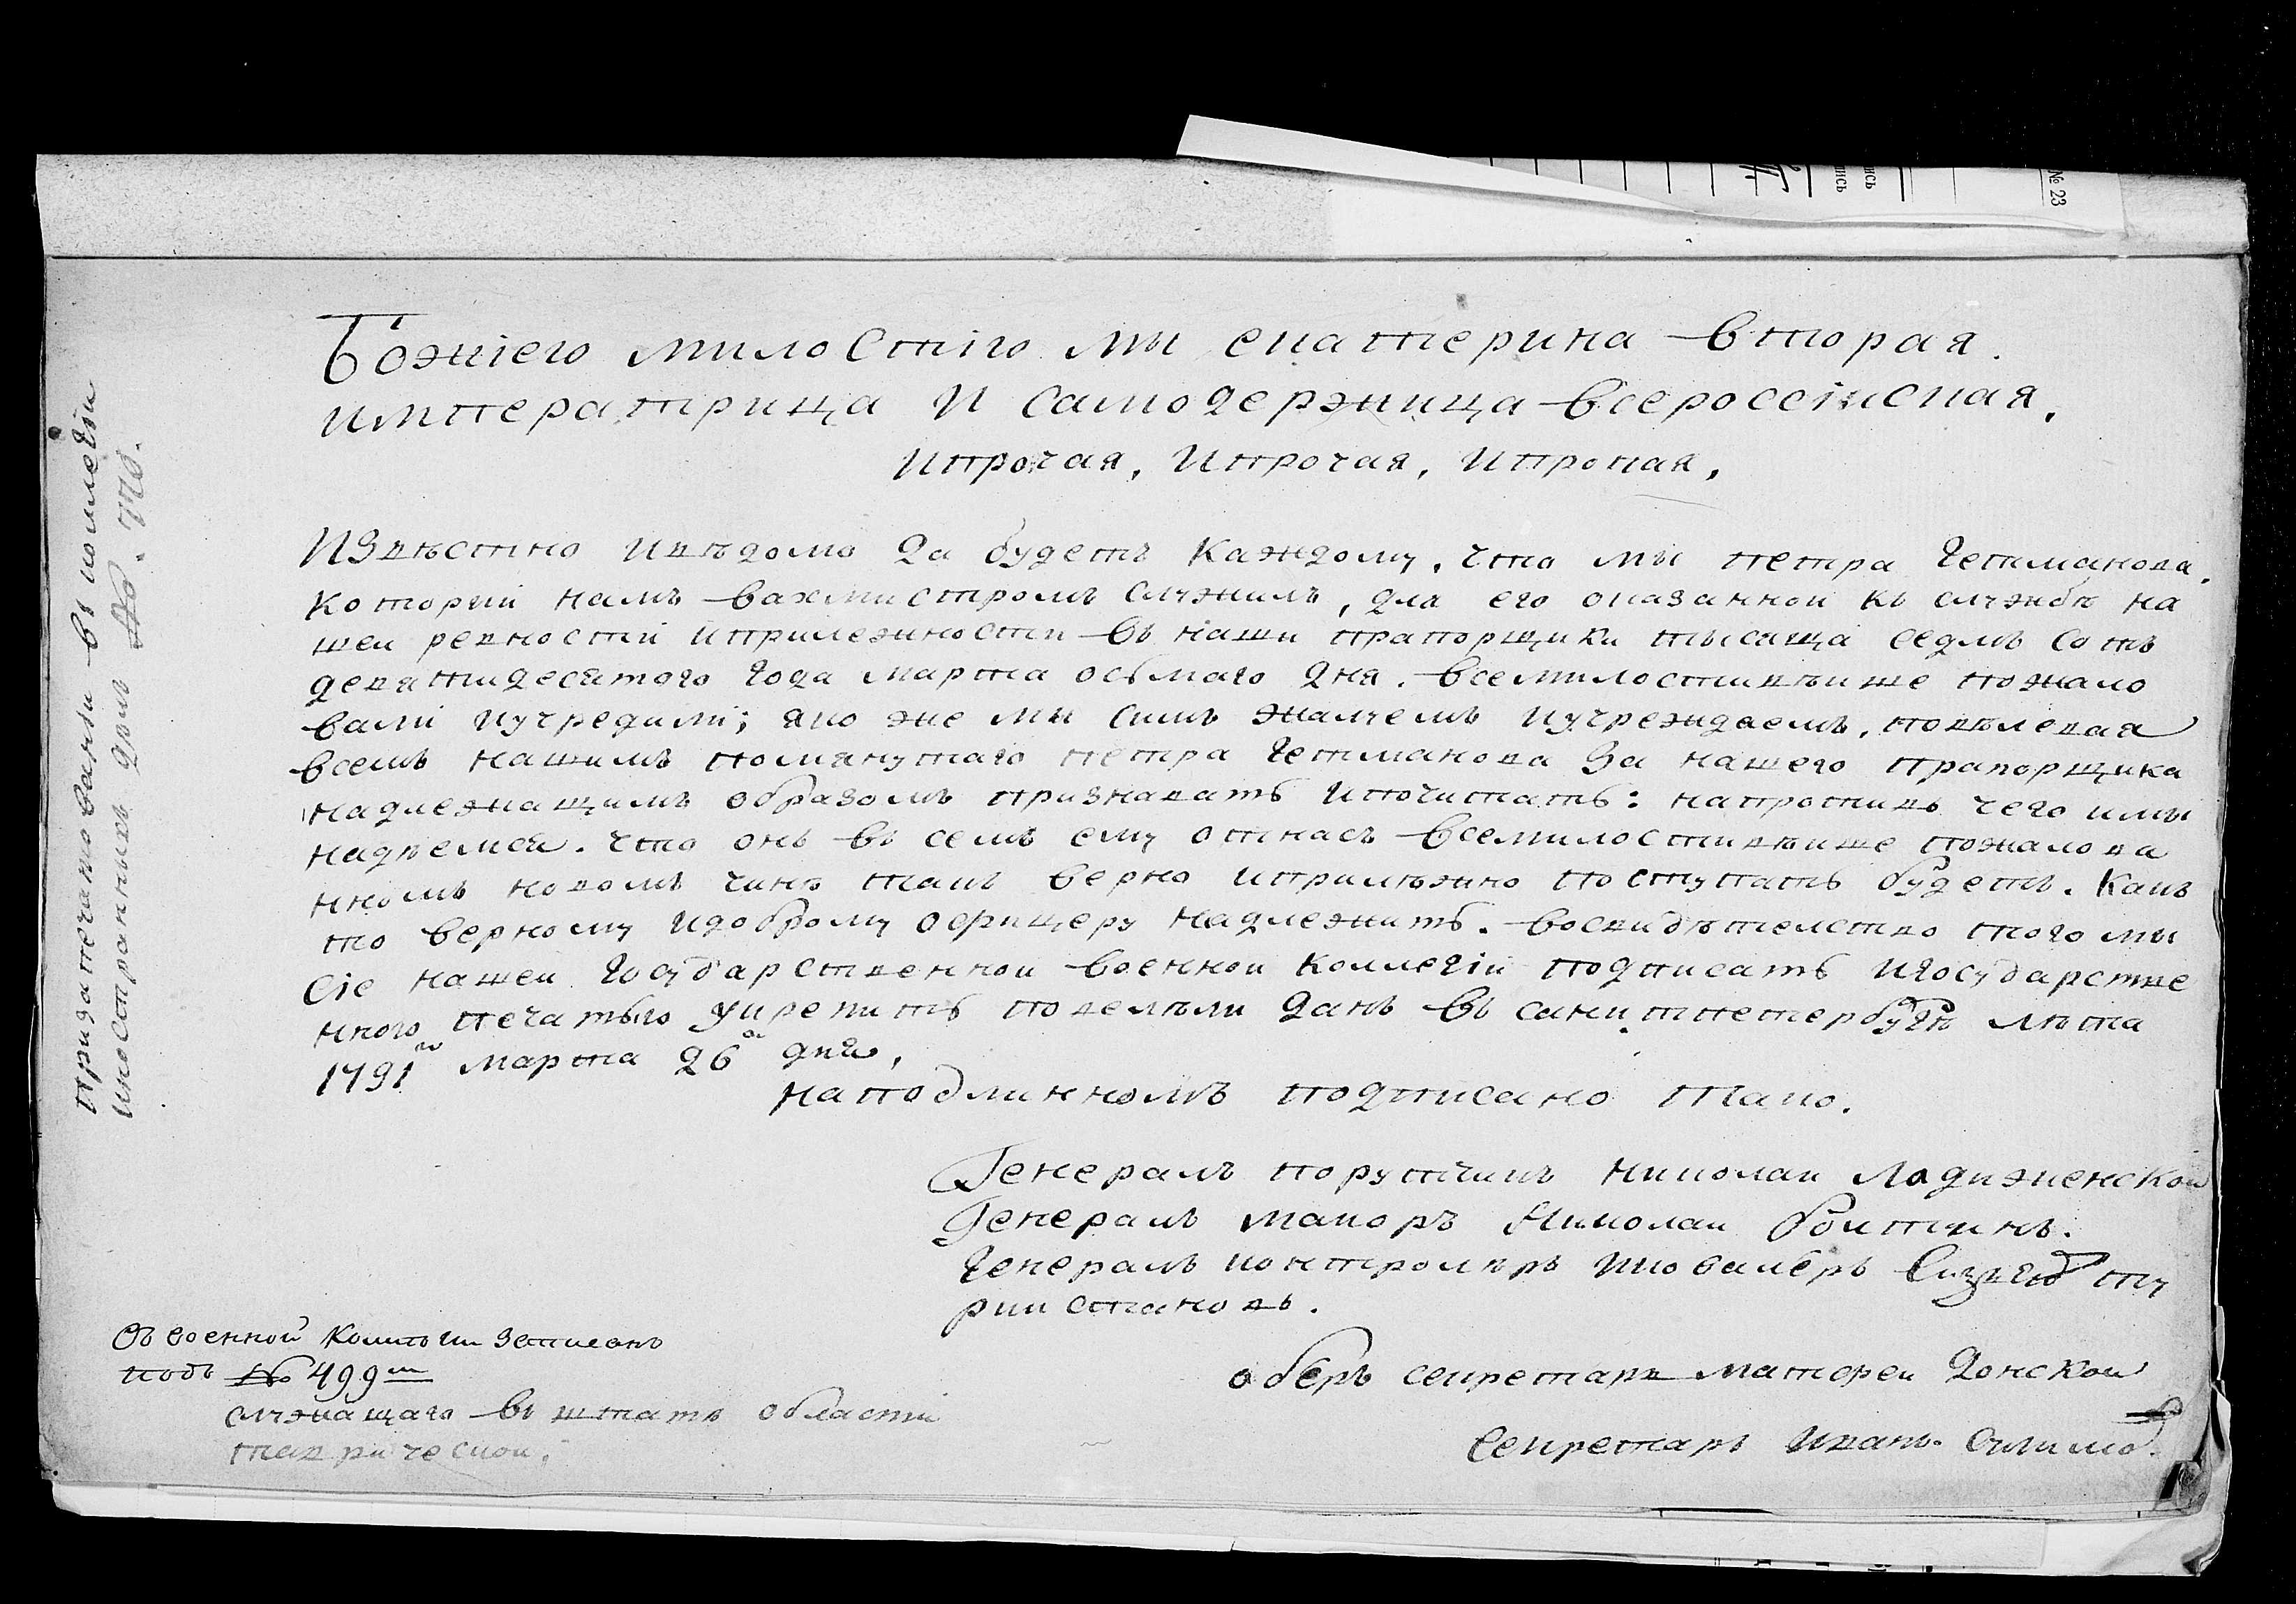 Божіею милостію мы екатерина вторая.
императрица и самодержица всероссіиская,
ипрочая, ипрочая, ипрочая,
Извѣстно ивѣдомо да будетъ каждому, что мы петра гетманова,
которыи намъ вахмистромъ служилъ, для его оказаннои къ службѣ на
шеи ревности иприлежности въ наши прапорщики тысяща седмъ сотъ
девятидесятого года марта осьмаго дня. всемилостивѣише пожало
вали иучредили; яко же мы симъ жалуемъ иучреждаемъ, повѣлевая
всемъ нашимъ помянутаго петра гетманова за нашего прапорщика
надлежащимъ образомъ признавать ипочитать: напротивъ чего имы
надѣемся. что онъ въ семъ ему отнасъ всемилостивѣише пожалова
нномъ новомъ чинѣ такъ верно иприлѣжно поступать будетъ. какъ
то верному идоброму офицеру надлежитъ. восвидѣтелство того мы
сіе нашеи государственнои военнои коллегіи подписать игосударстве
нною печатью укрепить повелѣли данъ въ санктпетербургѣ лѣта
1791 го марта 26 го дня,
наподлинномъ подписано тако.
Генералъ порутчикъ николаи Ладиженскои
Генералъ маиоръ Николаи боитинъ.
генералъ контролѣръ икавалеръ ту
рии станововъ.
оберъ секретарь матфеи донскои
секретарь иванъ
Въ военной Колегіи записанъ
подъ № 499 м
служащаго въ штатѣ области
таврическои.
при запечатовании въ колегіи
иностранныхъ дѣлъ №. 776.
№ 23